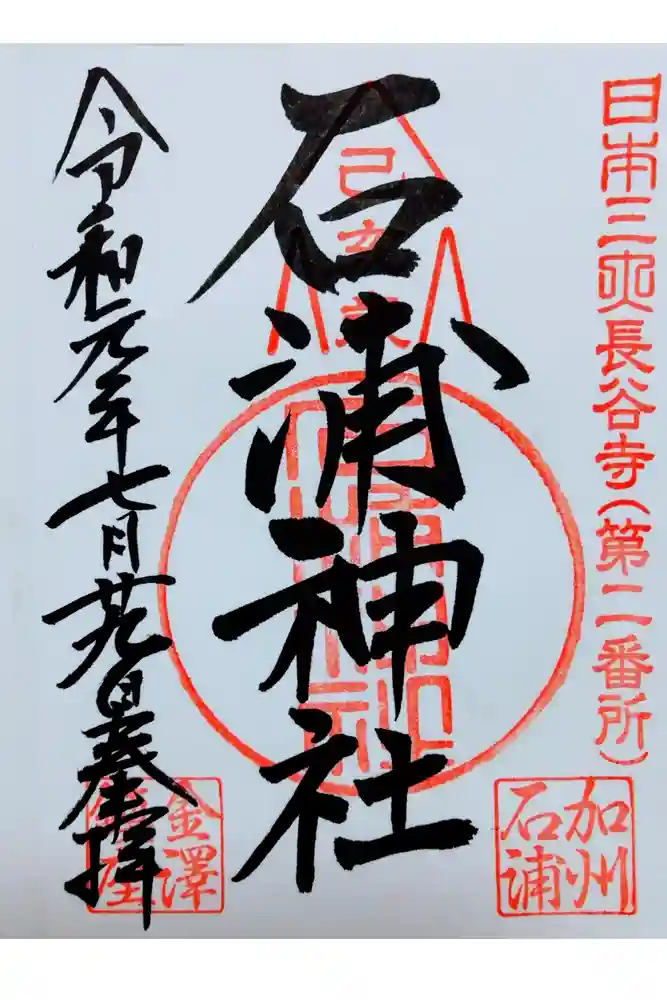 日本三所長谷寺（第二番所）
加州
石浦
石浦神社
己
令和元年七月廿九日奉拝
金澤